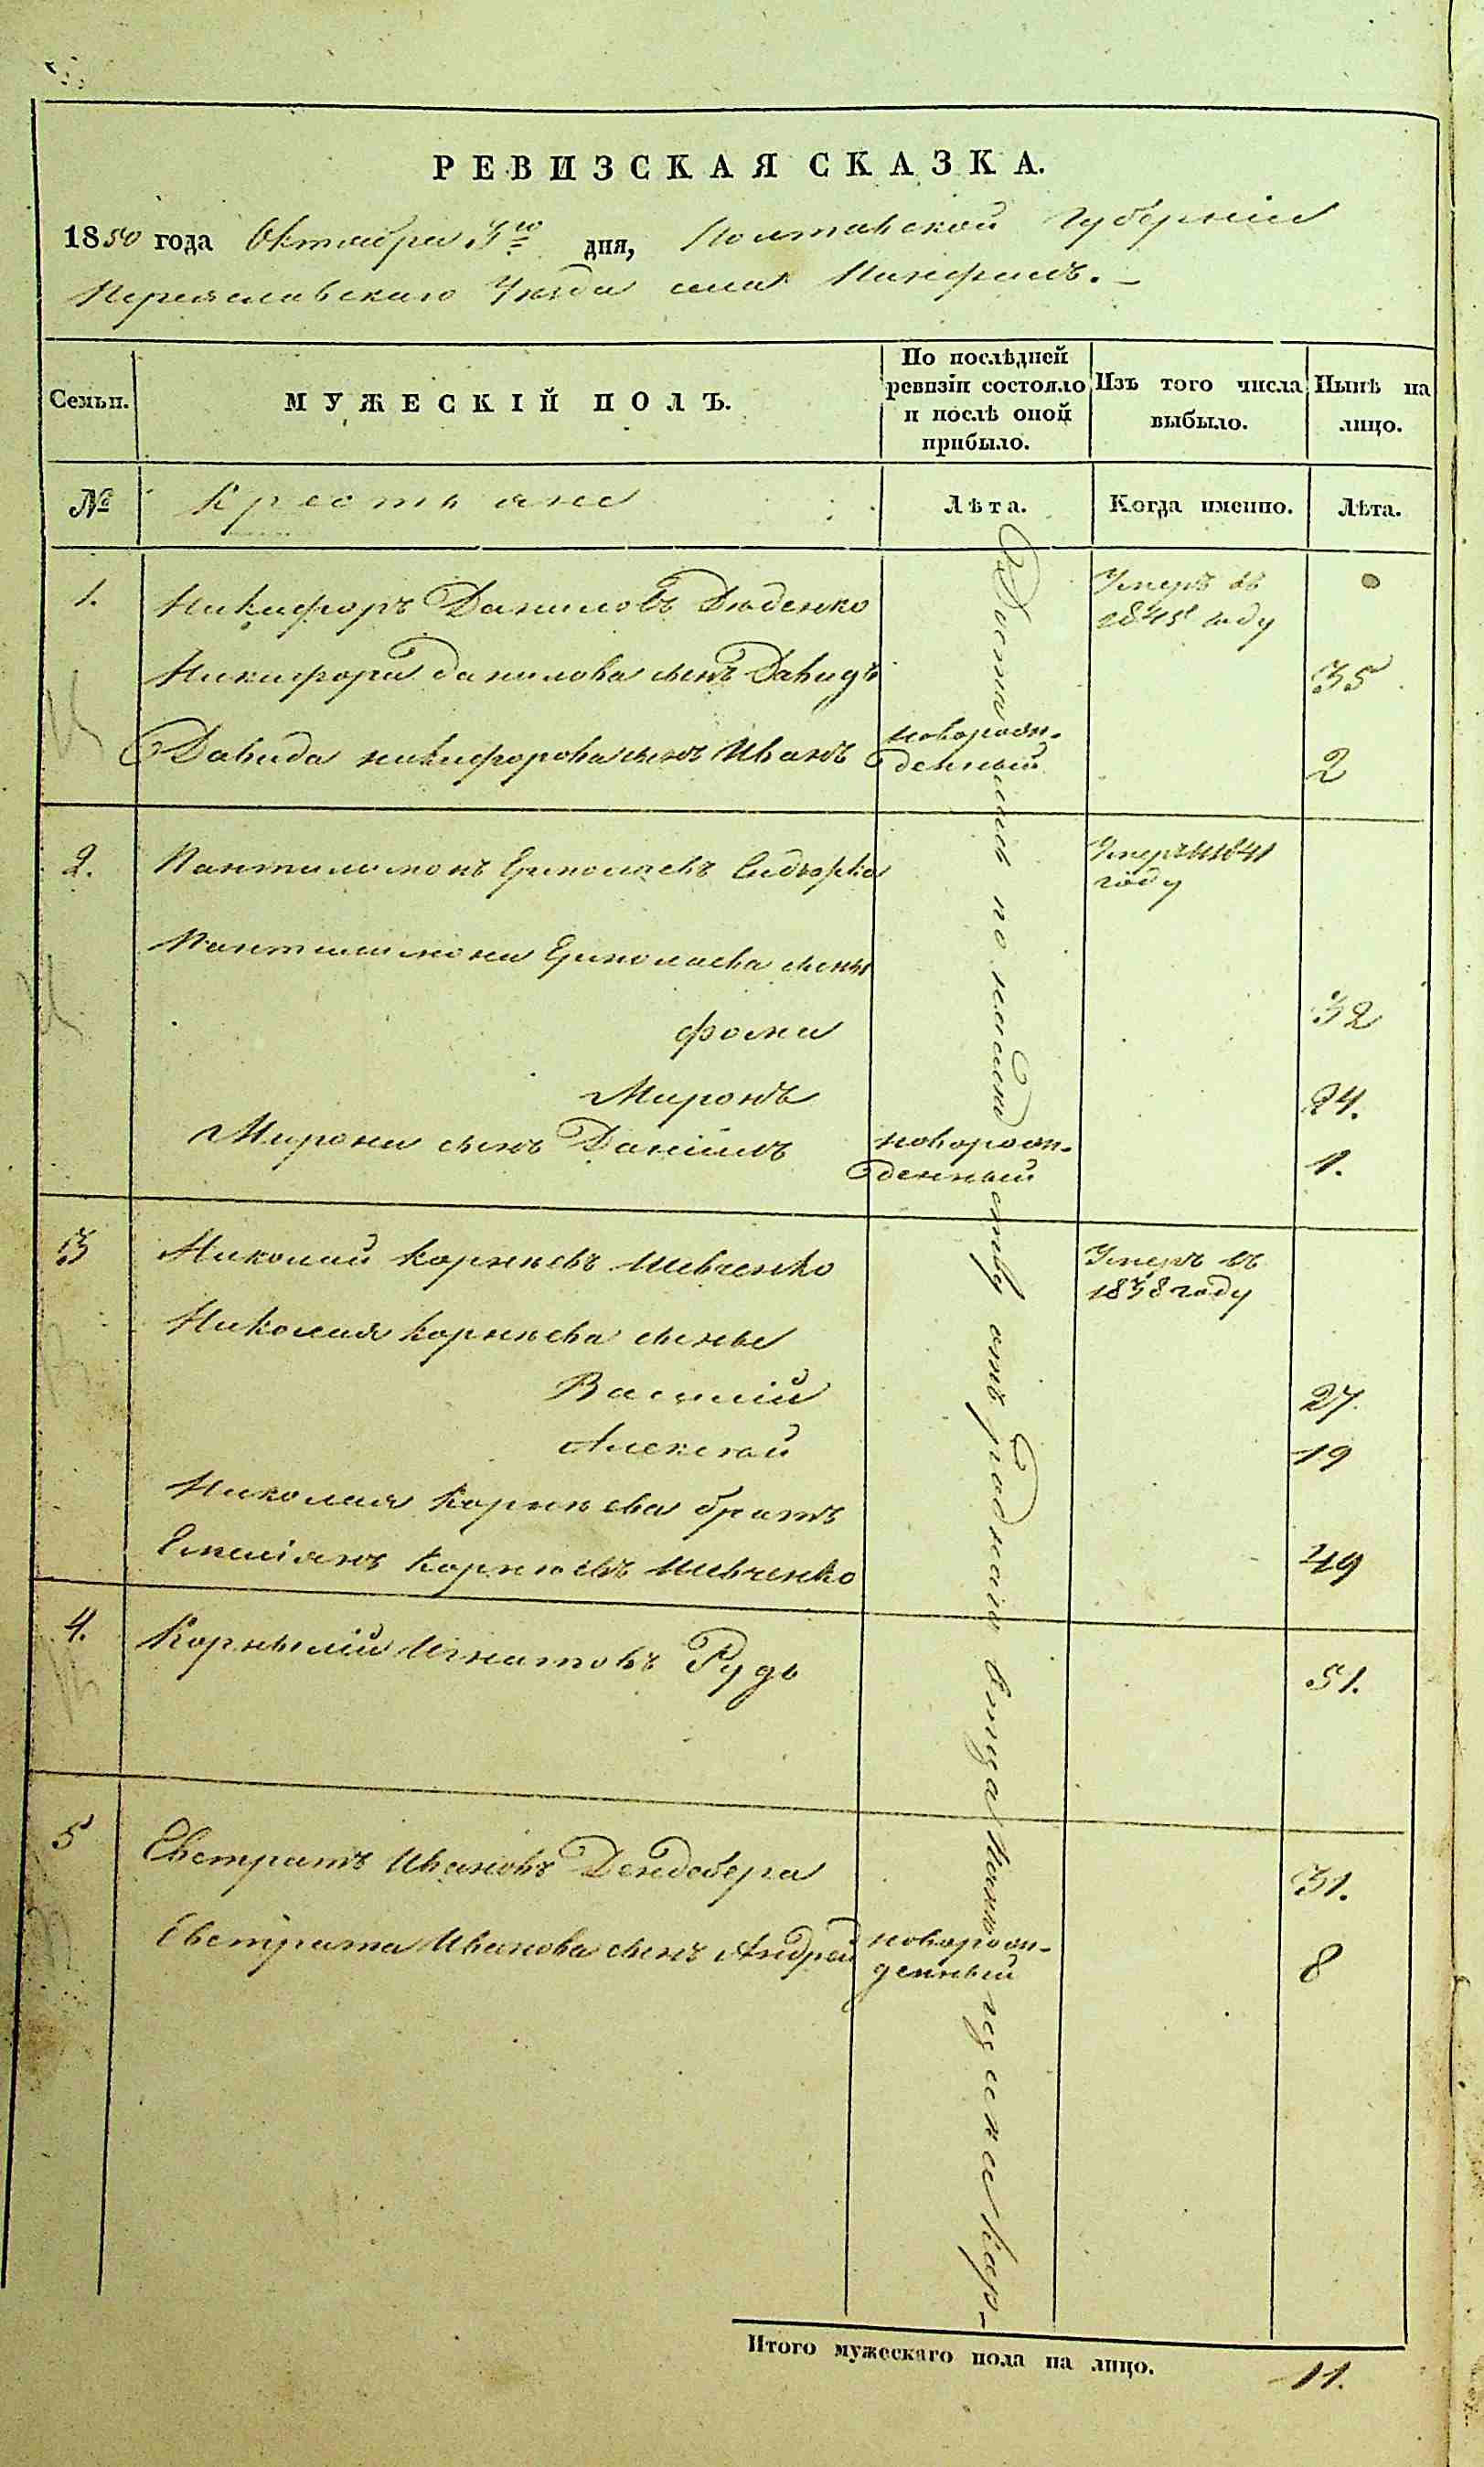 РЕВИЗСКАЯ СКАЗКА.
1850 года Октября 3го дня, Полтавской Губерніи
Переяславскаго Уѣзда села Панфилъ.
Семьи.
МУЖЕСКІЙ ПОЛЪ.
По послѣдней ревизіи состояло и послѣ оной прибыло.
Изъ того числа выбыло.
Нынѣ на лицо.
№
Крестьяне
Лѣта.
Когда именно.
Лѣта.
1. Никифоръ Даниловъ Дюденко Умеръ въ 1845 году
Никифора Данилова сынъ Давидъ 35
Давида никифорова сынъ Иванъ новорожденный 2
2. Пантилимонъ Ермолаевъ Умеръ 1841 году
Пантилимона Ермолаева сыны
Фома 32
Миронъ 24.
Мирона сынъ Даніилъ новорожденный 1.
3 Николай Корнѣевъ Шевченко Умеръ въ 1838 году
Николая Корнѣева сыны
Василій 27.
Алексѣй 19
Николая Корнѣева братъ
Емеліянъ Корнѣевъ Шевченко 49
4. Корнѣлій Игнатовъ Рудь 51.
5 Евстратъ Ивановъ Дендебера 31.
Евстрата Иванова сынъ Андрей новорожденный 8
Достались по наслѣдству отъ роднаго отца
Итого мужескаго пола на лицо. 11.